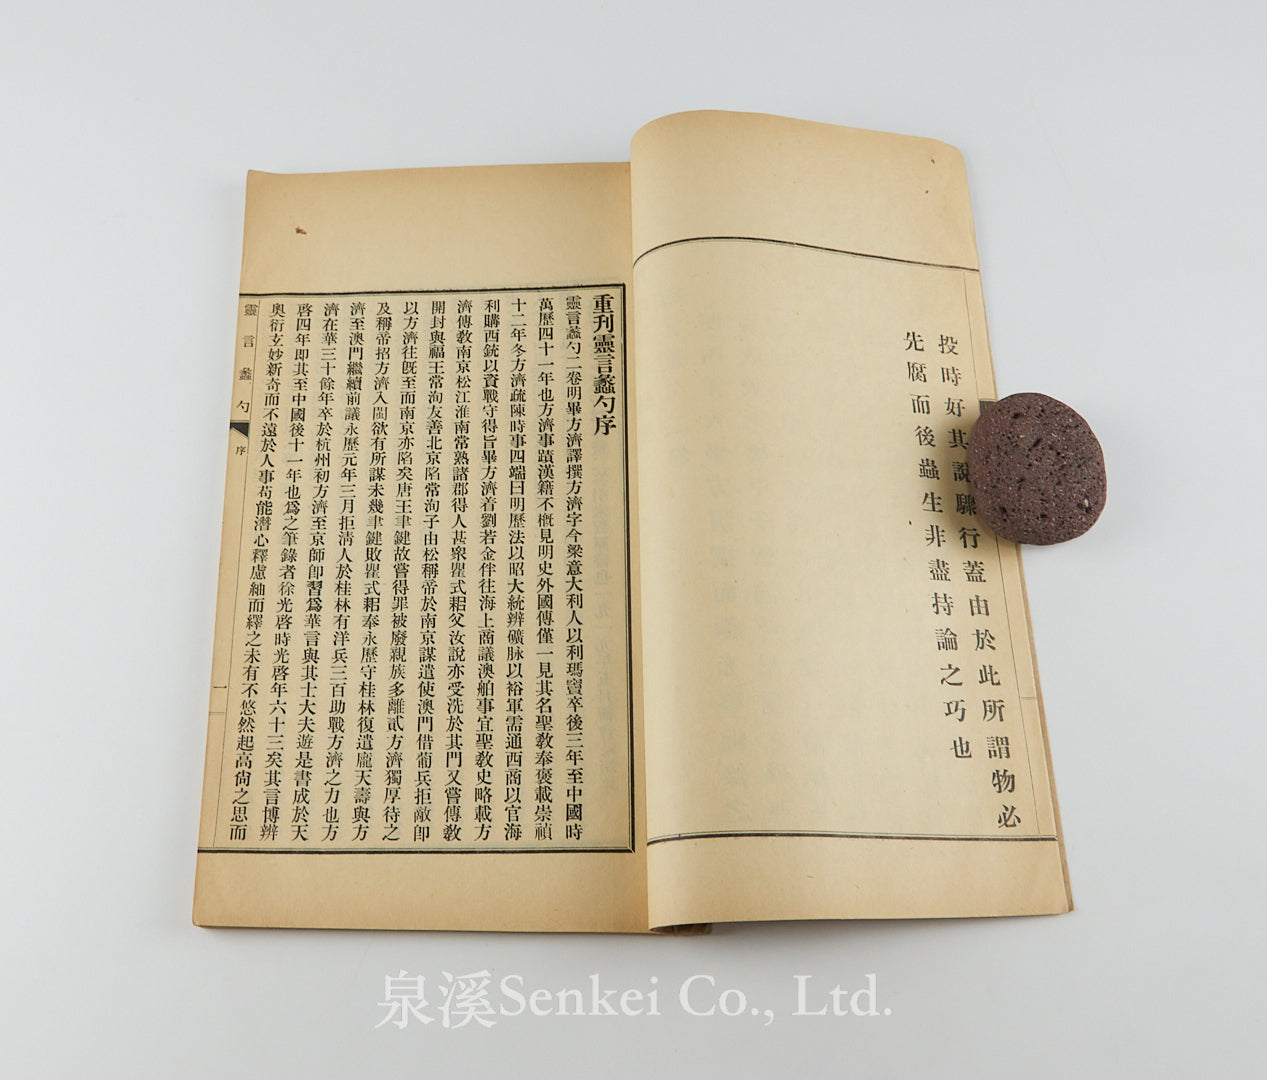 投時好其說驟行蓋由於此所謂物必
先腐而後蟲生非盡持論之巧也
重刋靈言蠡勺序
靈言蠡勺二卷明畢方濟譯撰方濟字今梁意大利人以利瑪竇卒後三年至中國時
萬歷四十一年也方濟事蹟漢籍不概見明史外國傳僅一見其名聖敎奉褒載崇禎
十二年冬方濟疏陳時事四端曰明歷法以昭大統辨礦脉以裕軍需通西商以官海
利購西銃以資戰守得旨畢方濟着劉若金伴往海上商議澳舶事宜聖敎史略載方
濟傳敎南京松江淮南常熟諸郡得人甚衆瞿式耜父汝說亦受洗於其門又嘗傳敎
開封與福王常洵友善北京陷常洵子由松稱帝於南京謀遣使澳門借葡兵拒敵卽
以方濟往旣至而南京亦陷矣唐王聿鍵故嘗得罪被廢親族多離貳方濟獨厚待之
及稱帝招方濟入閩欲有所謀未幾聿鍵敗瞿式耜奉永歷守桂林復遣龐天壽與方
濟至澳門繼續前議永歷元年三月拒清人於桂林有洋兵三百助戰方濟之力也方
濟在華三十餘年卒於杭州初方濟至京師卽習爲華言與其士大夫遊是書成於天
啓四年卽其至中國後十一年也爲之筆錄者徐光啓時光啓年六十三矣其言博辨
奧衍玄妙新奇而不遠於人事苟能潛心釋慮紬而繹之未有不悠然起高尙之思而
靈言蠡勺 序 一
泉溪Senkei Co., Ltd.